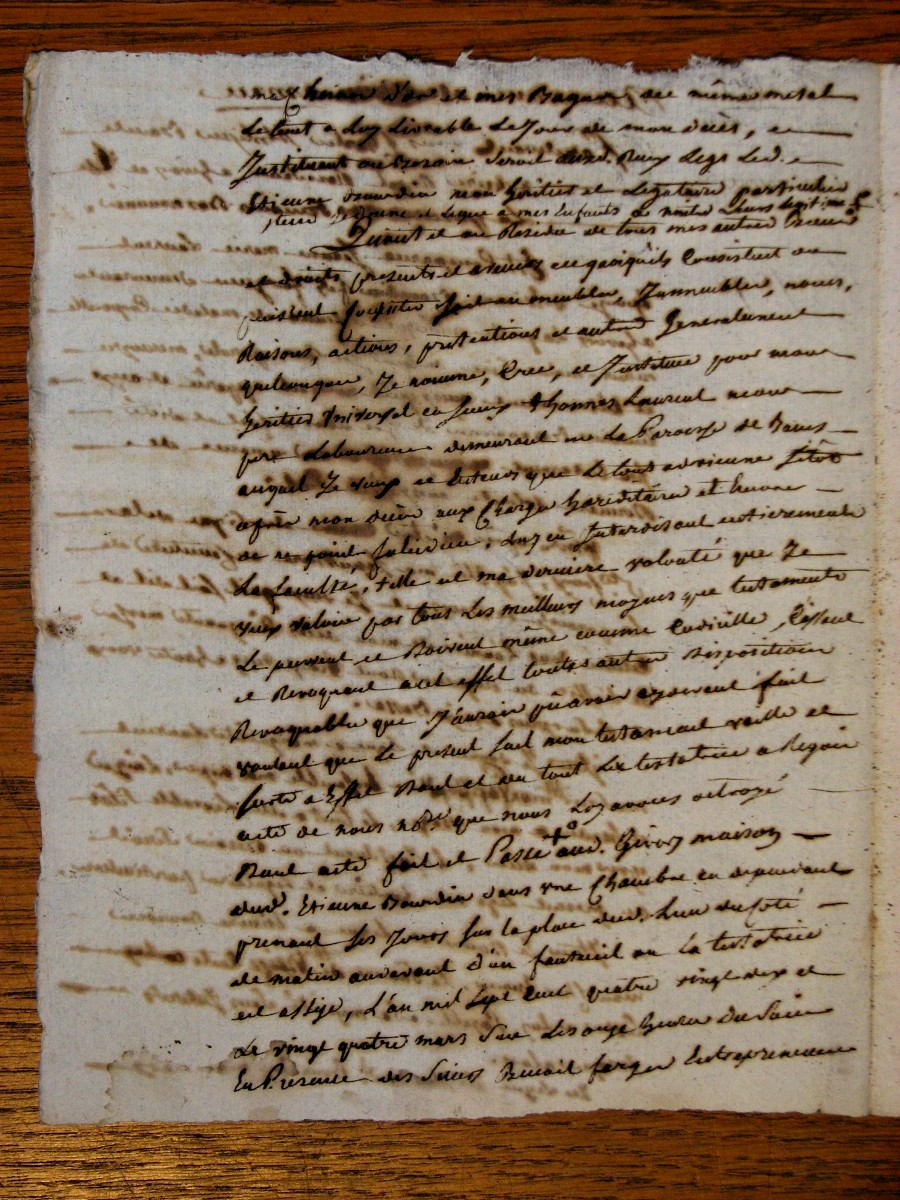 ma chaine d'or et mes Bagues de même metal
Le tout a Luy Livrable Le Jour de mon décès, et
Instituant au moyen dud. Legs Led.
Etienne Bourdin mon heritier et Legataire particulier
Item Je Donne et Legue a mes Enfants a naitre Leurs Legitime
Quant et au Residu de tous mes autres Biens
et droits presents et avenir en quoiqu'ils Consistent ou
puissent Consister soit en meubles, Immeubles, noms,
Raisons, actions, pretentions et autres Generalement
quelconques, Je nomme, Crée, et Institue pour mon
heritier Universel Thomas Laurent mon
pere Laboureur demeurant en La Paroisse de
auquel Je veux et Entends que Le tout advienne sitôt
après mon décès aux Charges hereditaires et
de ne point Luy en Interdisant entierement
La faculté, telle est ma derniere volonté que Je
veux valoir par tous Les meilleurs moyens que testaments
Le peuvent et Doivent même comme Codicille, Cassant
et Revoquant a cet effet toutes autres Dispositions
Revoquable que J'aurois pû avoir cy devant fait
voulant que Le present seul mon testament vaille et
sorte a Effet Dont et du tout La testatrice a Requis
acte de nous no.re que nous Luy avons octroyé
Dont acte fait et Passé + aud. Givors maison
dud. Etienne Bourdin dans une Chambre en dependant
prenant ses Jours sur la place dud. Lieu du Coté
de matin audevant d'un fauteuil ou La testatrice
est assise, L'an mil sept cent quatre vingt dix et
Le vingt quatre mars Sur Les onze heures Du Soir
En Presence des Sieurs Benoit farges Entrepreneur